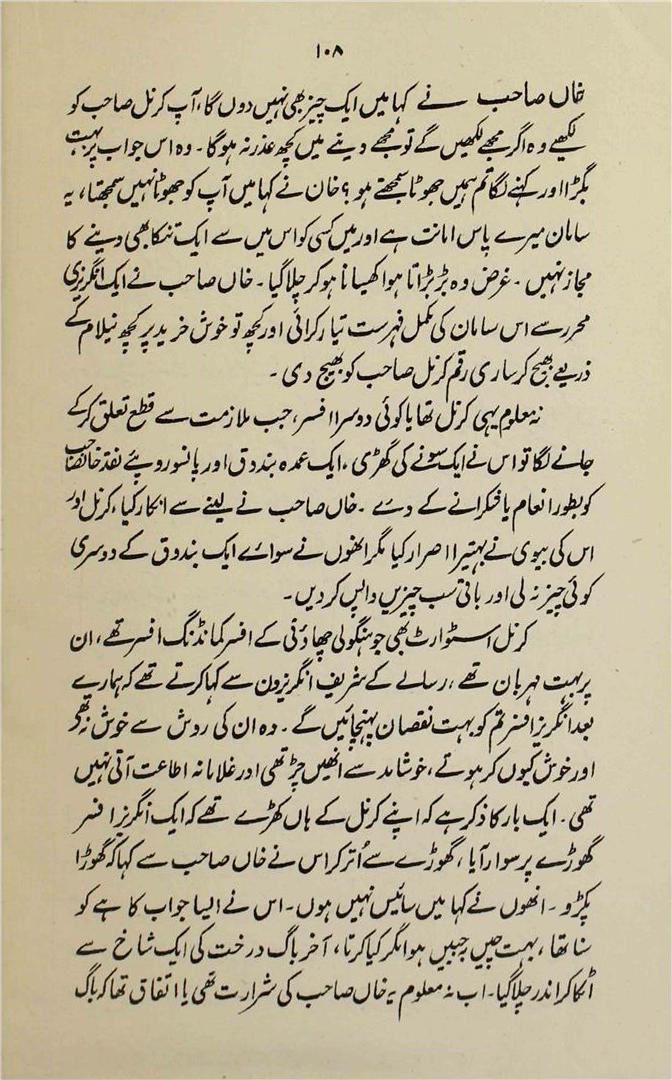 ۱۰۸
خاں صاحب نے کہا میں ایک چیز بھی نہیں دوں گا، آپ کرنل صاحب کو
لکھیے وہ اگر مجھے لکھیں گے تو مجھے دینے میں کچھ عذر نہ ہوگا۔ وہ اس جواب پر بہت
بگڑا اور کہنے لگا تم ہمیں جھوٹا سمجھتے ہو؟ خان نے کہا میں آپ کو جھوٹا نہیں سمجھتا، یہ
سامان میرے پاس امانت ہے اور میں کسی کو اس میں سے ایک تنکا بھی دینے کا
مجاز نہیں۔ غرض وہ بڑبڑاتا ہوا کھسیانا ہو کر چلا گیا۔ خاں صاحب نے ایک انگریزی
محرر سے اس سامان کی مکمل فہرست تیار کرائی اور کچھ تو خوش خرید پر کچھ نیلام کے
ذریعے بھیج کر ساری رقم کرنل صاحب کو بھیج دی۔
نہ معلوم یہی کرنل تھا یا کوئی دوسرا افسر، جب ملازمت سے قطع تعلق کر کے
جانے لگا تو اس نے ایک سونے کی گھڑی، ایک عمدہ بندوق اور پانسو روپئے نقد خانصاحب
کو بطور انعام یا شکرانے کے دئے۔ خاں صاحب نے لینے سے انکار کیا، کرنل اور
اس کی بیوی نے بہتیرا اصرار کیا مگر انھوں نے سوائے ایک بندوق کے دوسری
کوئی چیز نہ لی اور باقی سب چیزیں واپس کر دیں۔
کرنل اسٹوارٹ بھی جو ہنگولی چھاؤنی کے افسر کمانڈنگ افسر تھے، ان
پر بہت مہربان تھے، رسالے کے شریف انگریزوں سے کہا کرتے تھے کہ ہمارے
بعد انگریز افسر تم کو بہت نقصان پہنچائیں گے۔ وہ ان کی روش سے خوش نہ تھے
اور خوش کیوں کر ہوتے، خوشامد سے انھیں چڑ تھی اور غلامانہ اطاعت آتی نہیں
تھی۔ ایک بار کا ذکر ہے کہ اپنے کرنل کے ہاں کھڑے تھے کہ ایک انگریز افسر
گھوڑے پر سوار آیا، گھوڑے سے اُتر کر اس نے خاں صاحب سے کہا کہ گھوڑا
پکڑو۔ انھوں نے کہا میں سائیس نہیں ہوں۔ اس نے ایسا جواب کا ہے کو
سنا تھا، بہت چیں بہ جبیں ہوا مگر کیا کرتا، آخر باگ درخت کی ایک شاخ سے
اٹکا کر اندر چلا گیا۔ اب نہ معلوم یہ خاں صاحب کی شرارت تھی یا اتفاق تھا کہ باگ